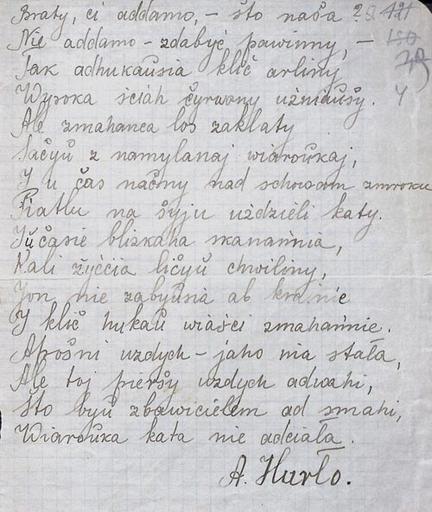 Braty, ci addamo, – što naša
Nie addamo – zdabyć pawinny, –
Tak adhukaŭsia klič arliny
Wysoka ściah čyrwony uźniaŭšy.
Ale zmahańca los zaklaty
Sačyŭ z namylanaj wiaroŭkaj,
I u čas načny nad schowam zmroku
Piatlu na šyju uździeli katy.
Iŭčasie blizkaha skanańnia,
Kali žyćcia ličyŭ chwiliny,
Jon nie zabyŭsia ab krainie
I klič hukaŭ wiaści zmahańnie.
Apošni uzdych – jaho nia stała,
Ale toj pieršy uzdych adwahi,
Što byŭ zbawicielem ad smahi,
Wiaroŭka kata nie adciała.
A. Hurło.